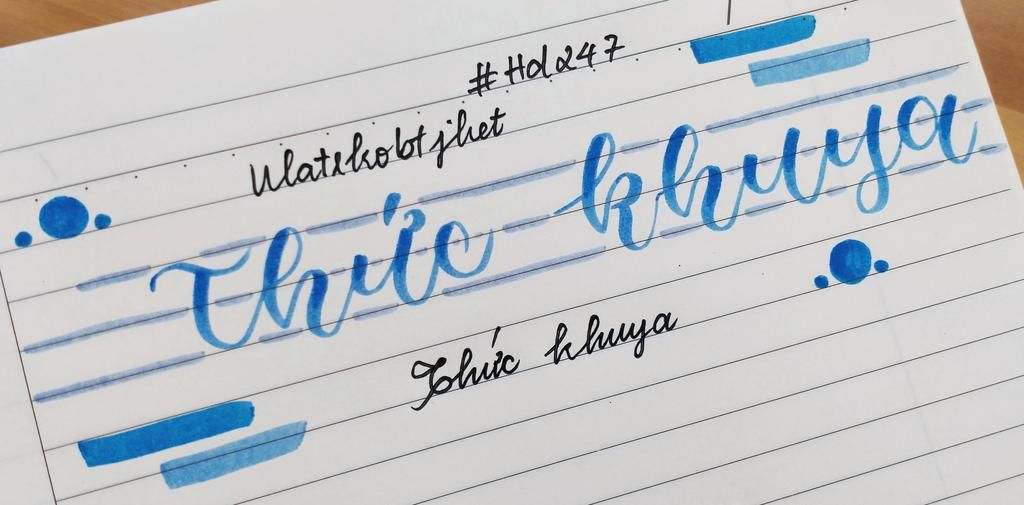 #Hd247
Thức khuya
Thức khuya